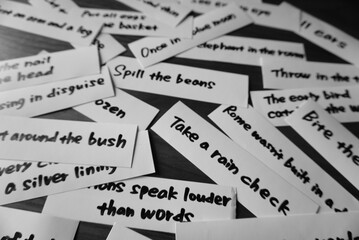 an arm and a leg
Put all
basket
Once in blue moon
elephant in the room
ll ears
the nail
e head
Spill the beans
Throw in the
sing in disguise
The early
Bite the
t around the bush
Take a rain check
Rome wasn't built in a
a silver linin
ons speak louder
than words